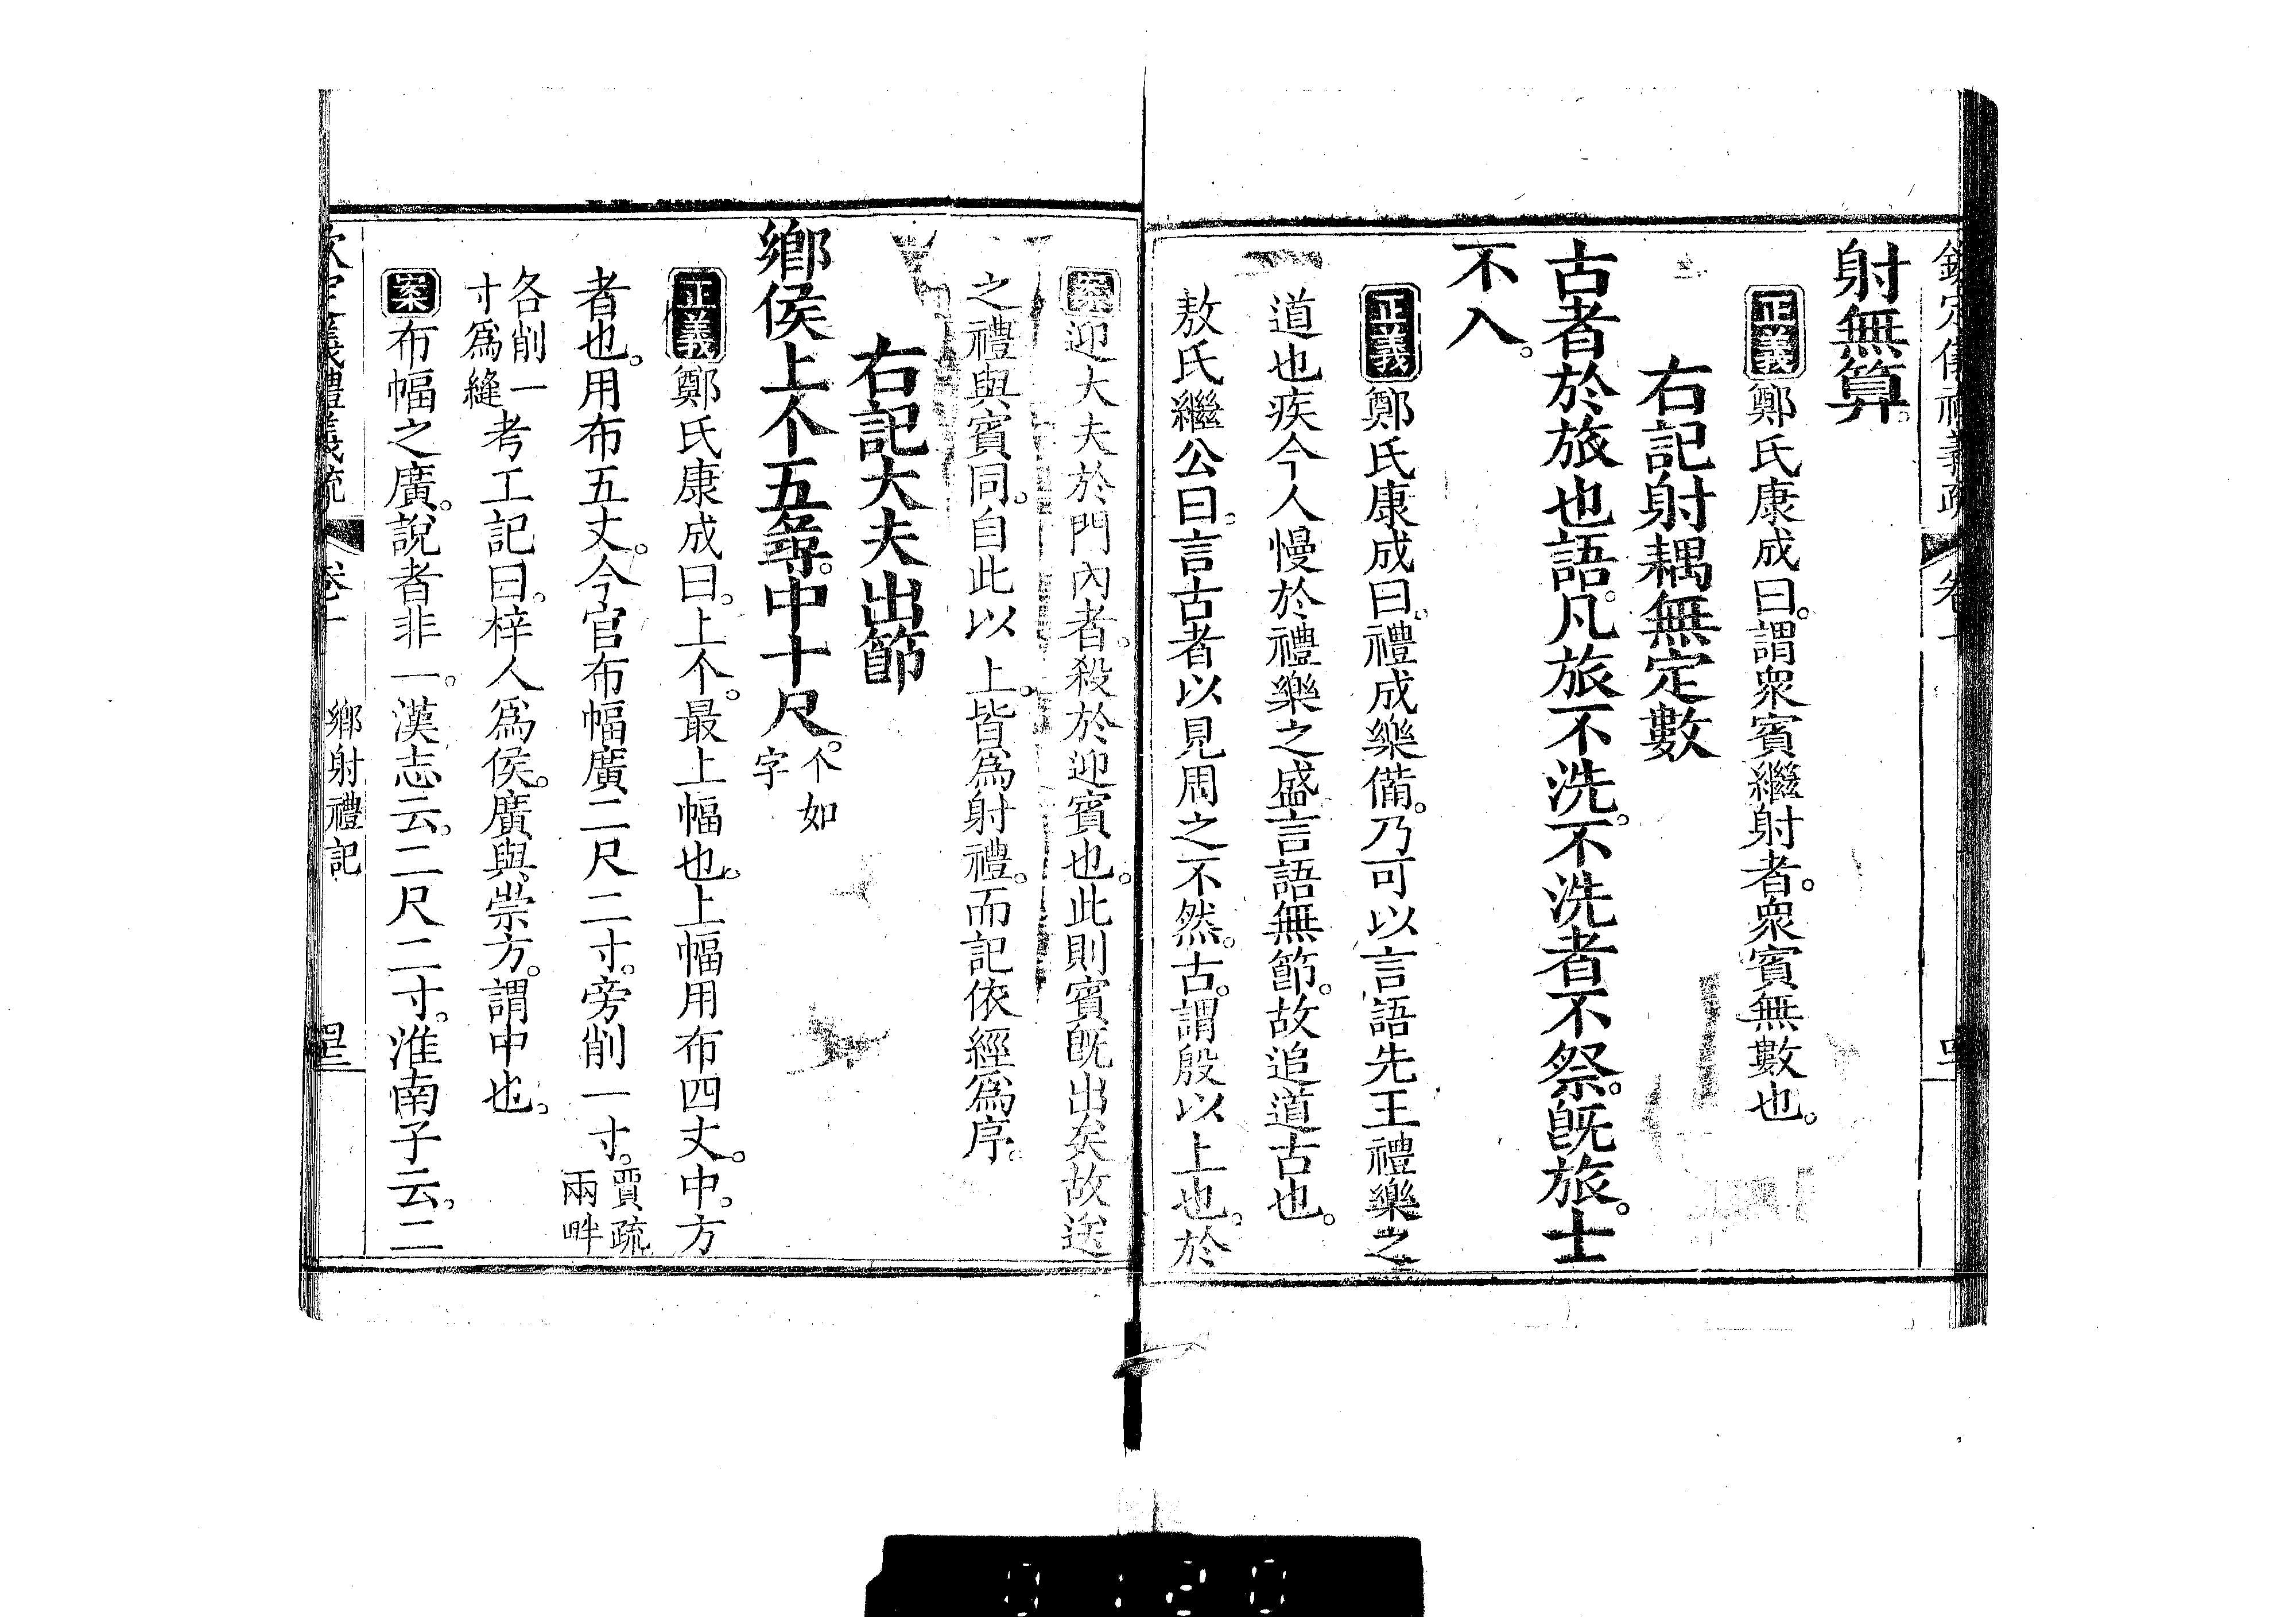 射無算。
正義鄭氏康成曰。謂衆賓繼射者。衆賓無數也。
右記射耦無定數
古者於旅也語。凡旅不洗。不洗者不祭。旣旅。士
不入。
正義鄭氏康成曰。禮成樂備。乃可以言語先王禮樂之
道也疾今人慢於禮樂之盛言語無節。故追道古也。
敖氏繼公曰。言古者以見周之不然。古。謂殷以上也。於
案迎大夫於門內者。殺於迎賓也。此則賓旣出矣故送
之禮與賓同。自此以上。皆爲射禮。而記依經爲序。
右記大夫出節
鄉侯上个五尋。中十尺。个如
字
正義鄭氏康成曰。上个。最上幅也。上幅用布四丈。中。方
者也。用布五丈。今官布幅廣二尺二寸。旁削一寸。賈疏
兩畔
各削一
寸爲縫
考工記曰。梓人爲侯。廣與崇方。謂中也。
案布幅之廣。說者非一。漢志云。二尺二寸。淮南子云。二
鄉射禮記
0 1 2 0